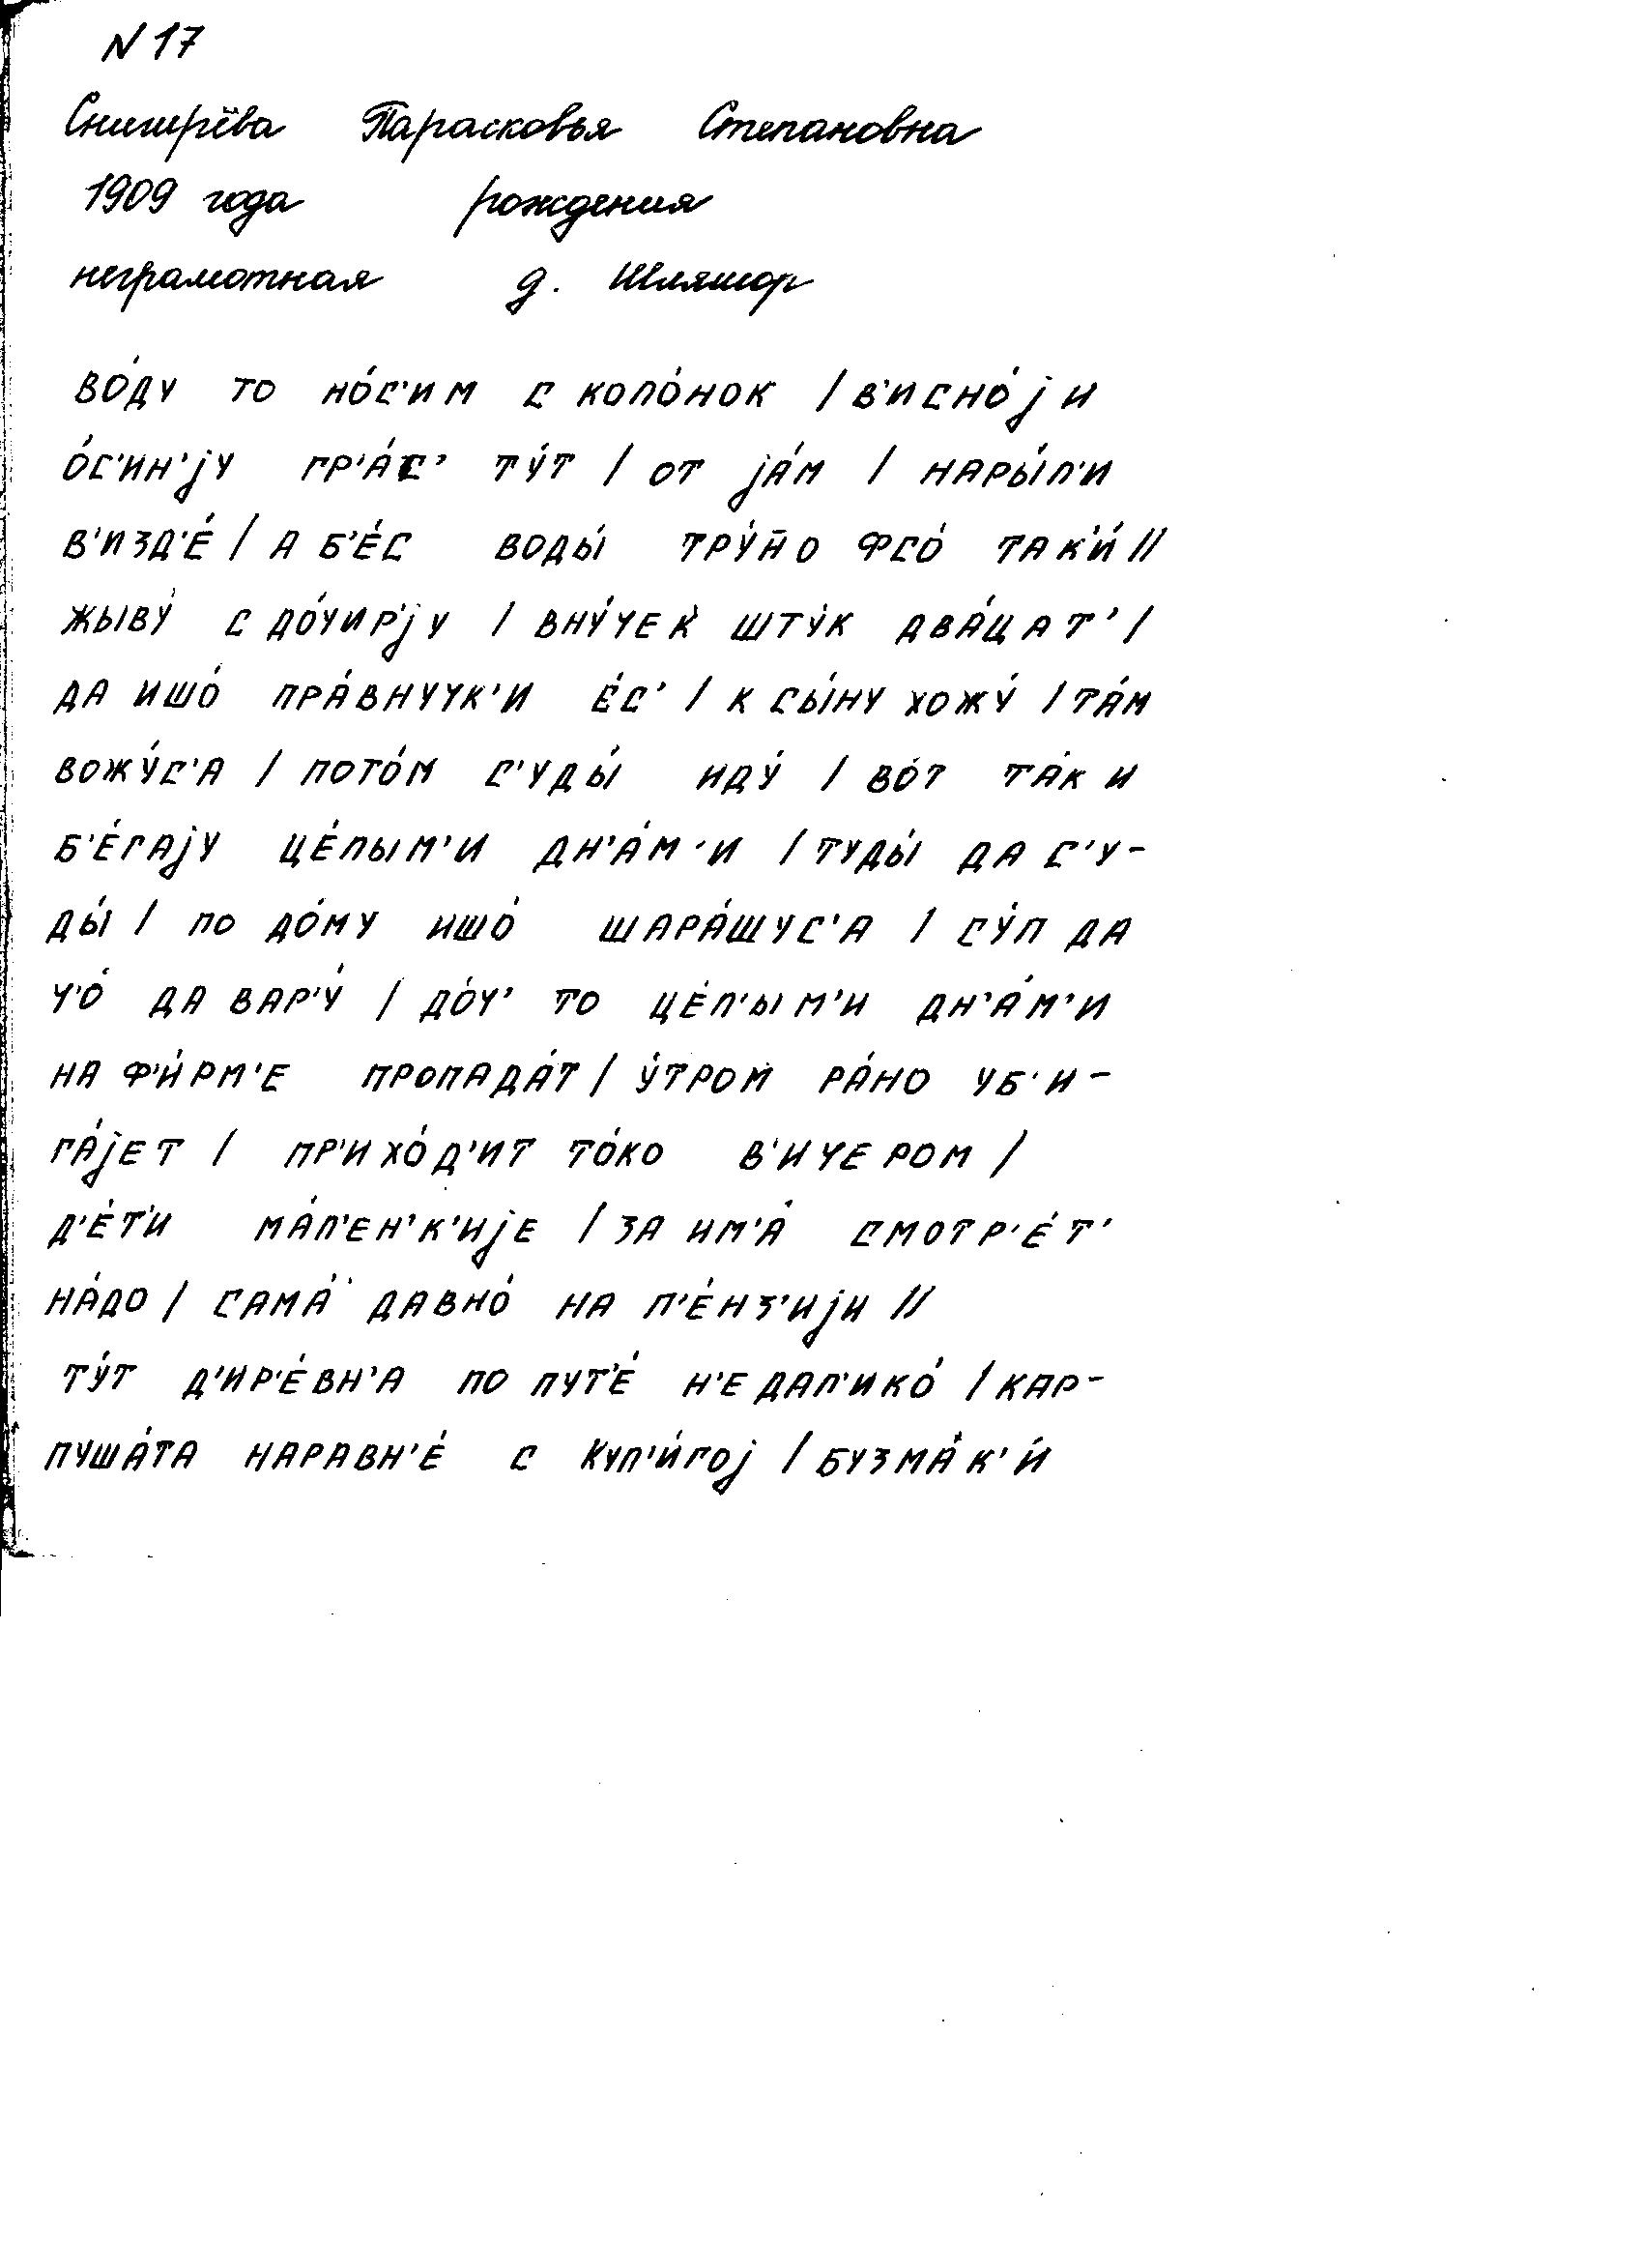 N 17
Снигирёва Парасковья Степановна
1909 года рождения
неграмотная д. Шляшор
во́ду то но́с'им с коло́нок / в'исно́jи
о́с'ин'jу гр'а́с' ту́т / от jа́м / нары́л'и
в'изд'е́ / а б'е́с воды́ тру́н̄о фсо́ так'и́ //
жыву́ с до́чир'jу / вну́чек шту́к два́цат' /
да ишо́ пра́внучк'и е́с' / к сы́ну хожу́ / та́м
вожу́с'а / пото́м с'уды́ иду́ / во́т та́к и
б'е́гаjу це́лым'и дн'а́м'и / туды́ да с'у-
ды́ / по до́му ишо́ шара́шус'а / су́п да
ч'о́ да вар'у́ / до́ч' то це́л'ым'и дн'а́м'и
на ф'и́рм'е пропада́т / у́тром ра́но уб'и-
га́jет / пр'ихо́д'ит то́ко в'ичером /
д'е́т'и ма́л'ен'к'иjе / за им'а́ смотр'е́т'
на́до / сама́ давно́ на п'е́нз'иjи //
ту́т д'ир'е́вн'а по пут'е́ н'едал'ико́ / кар-
пуша́та наравн'е́ с Кул'и́гоj / бузма́к'и́